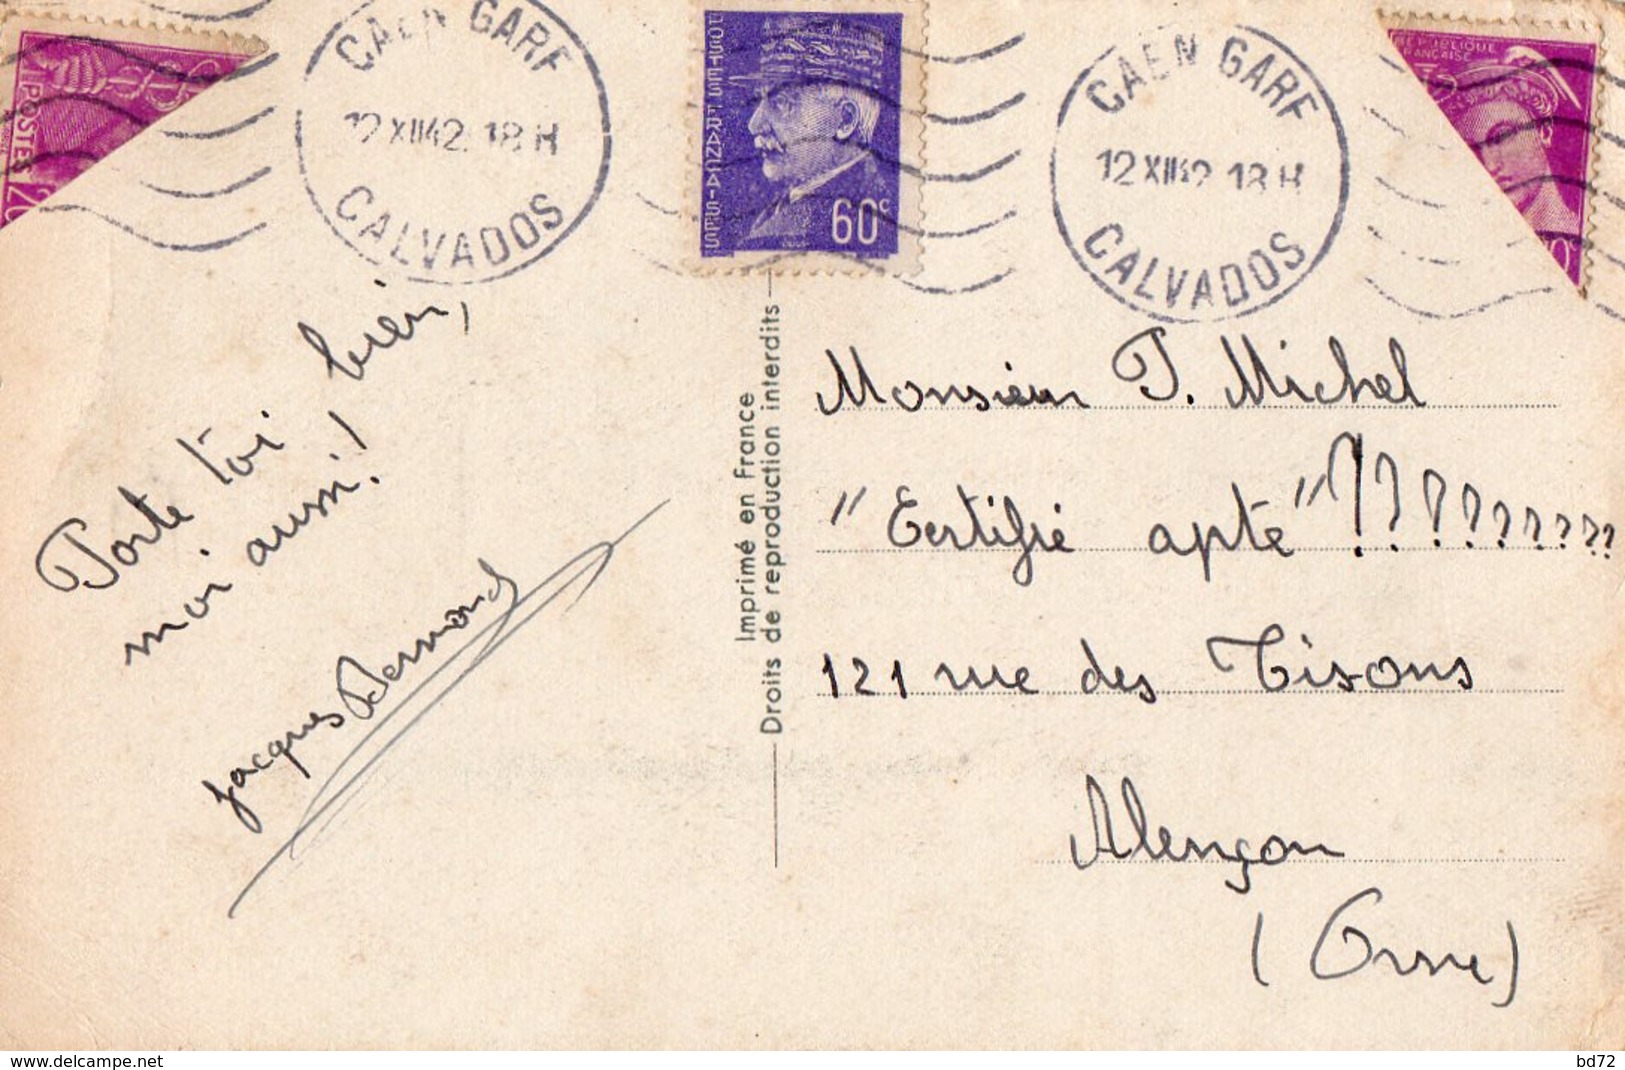 CAEN GARE
12 XII 42 18 H
CALVADOS
POSTES
20
POSTES FRANÇAISES
60c
CAEN GARE
12 XII 42 18 H
CALVADOS
REPUBLIQUE
FRANÇAISE
Porte toi bien,
moi aussi!
Jacques
Imprimé en France
Droits de reproduction interdits
Monsieur P. Michel
"Certifié apte"!?????????
121 rue des Tisons
Alençon
(Orne)
www.delcampe.net
bd72